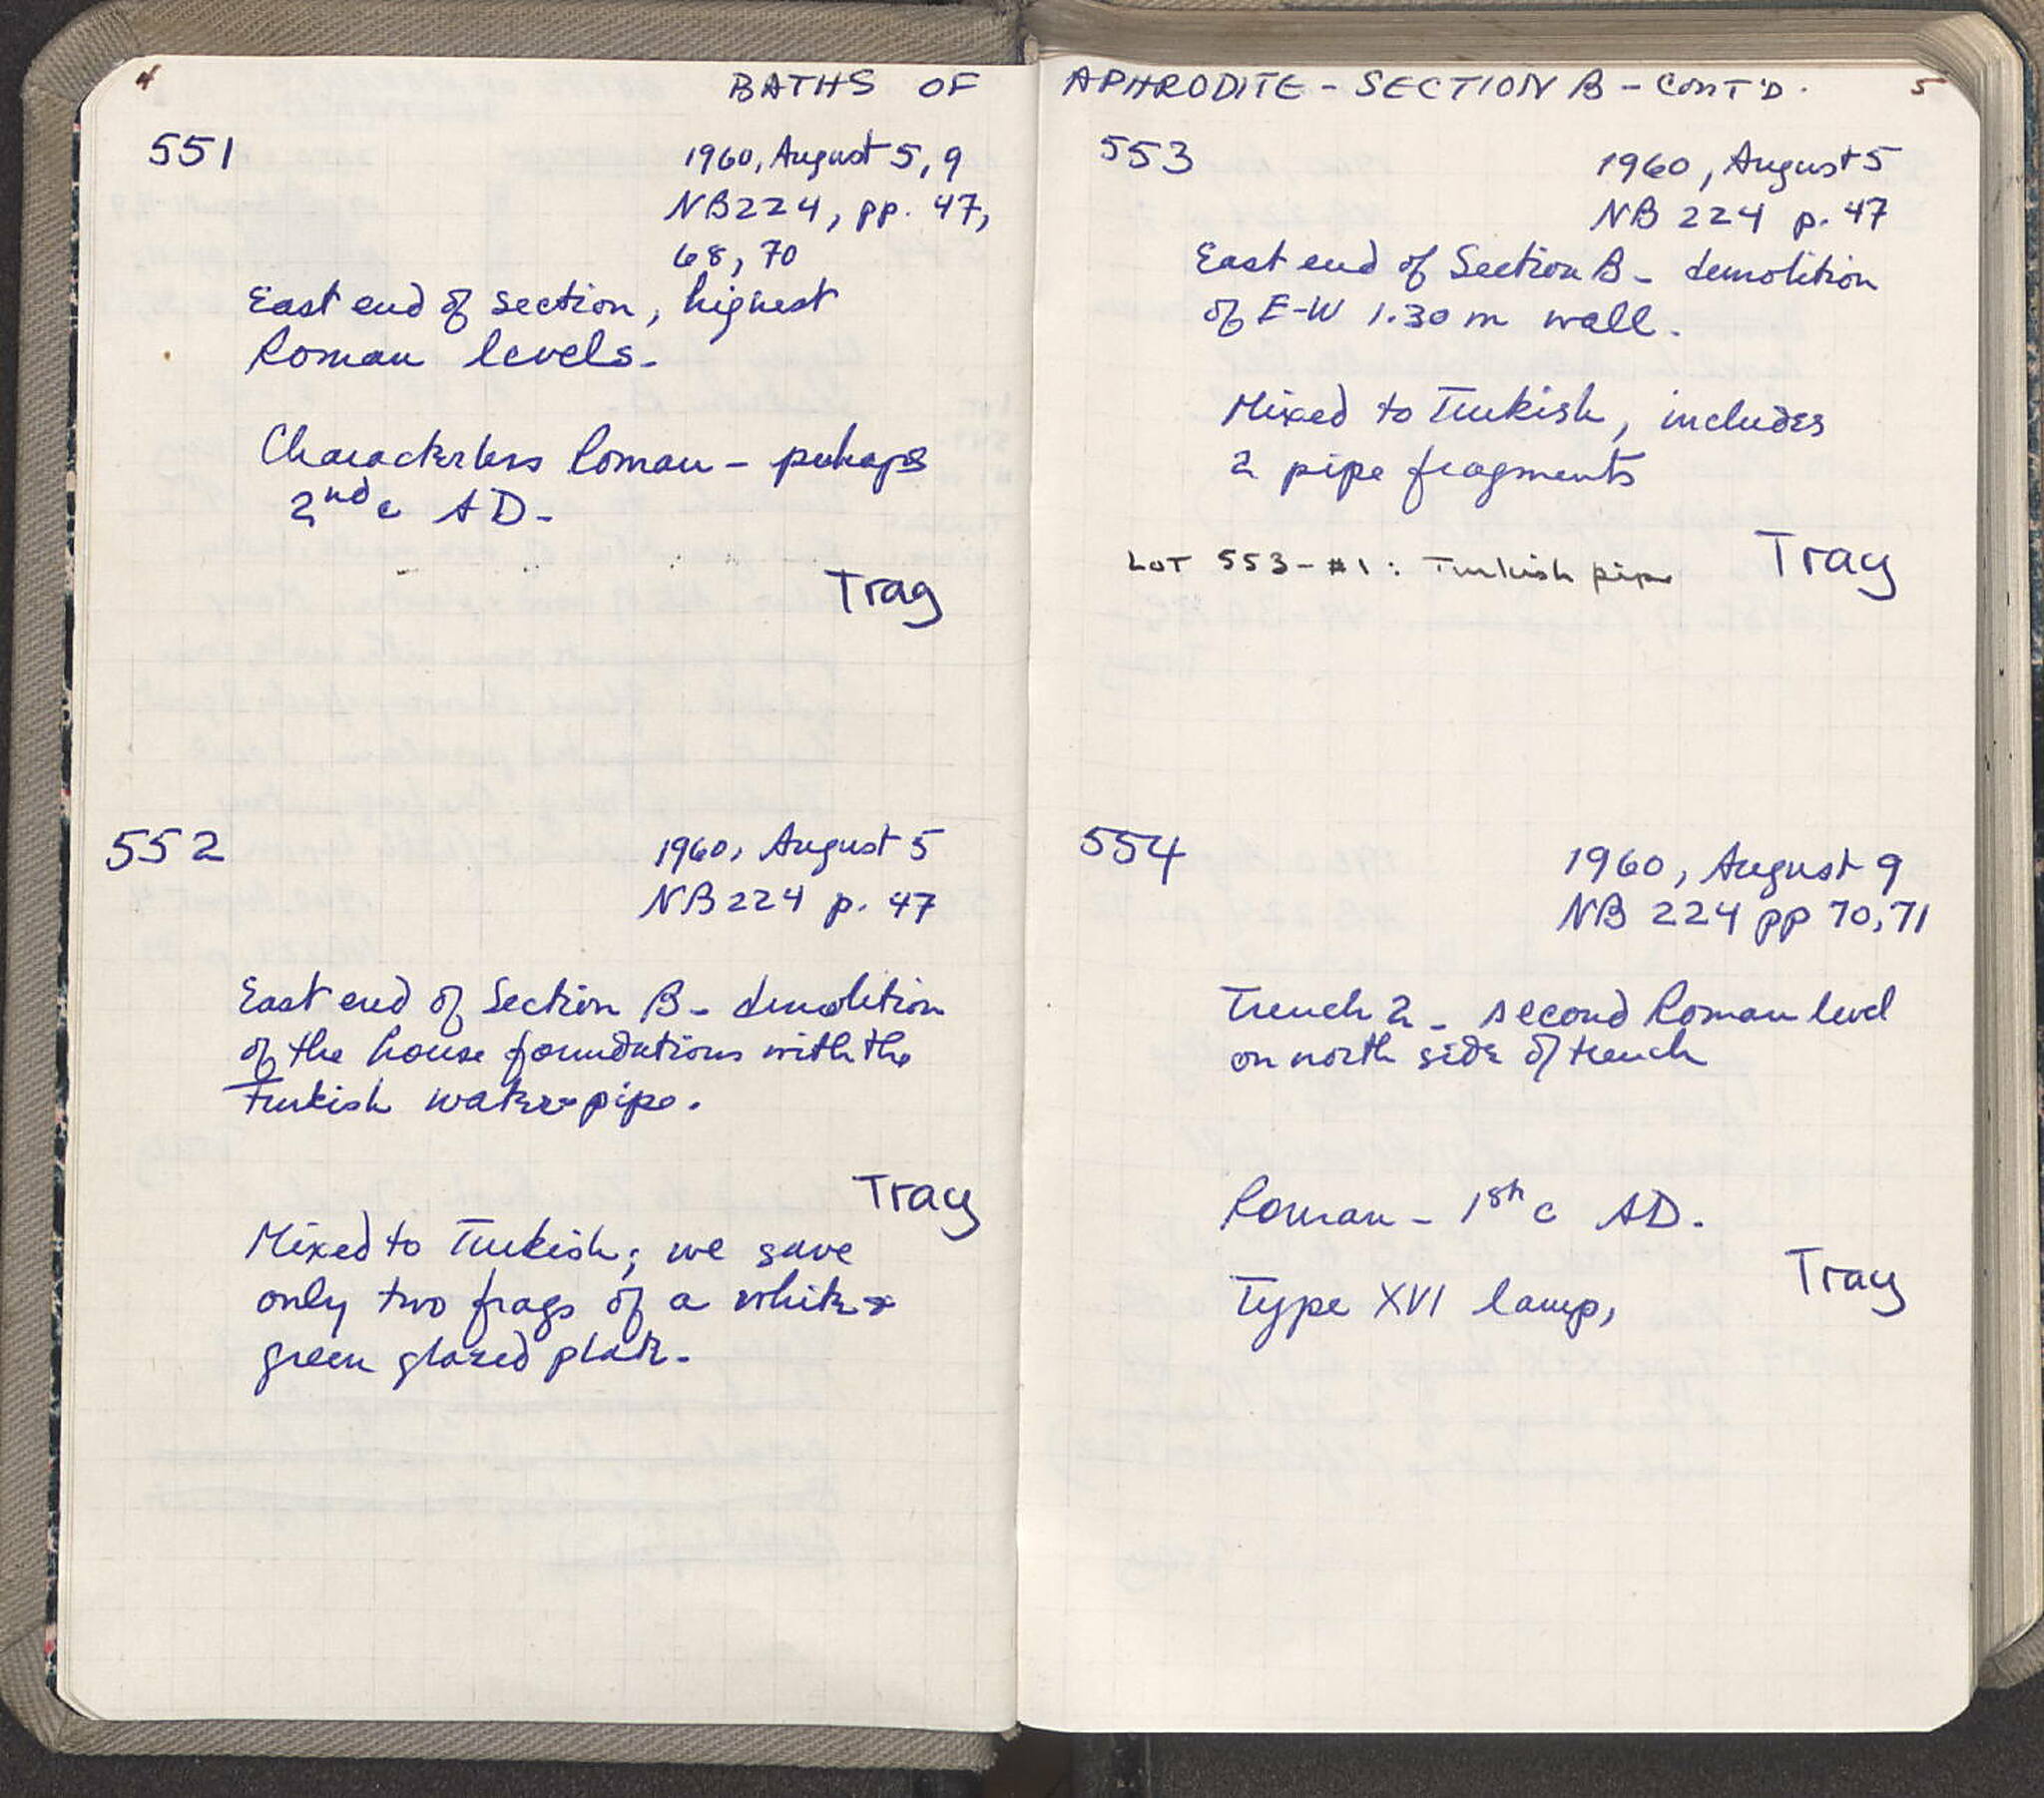 4
BATHS OF
551
1960, August 5, 9
NB224, pp. 47,
68, 70
East end of section, highest
Roman levels.
Characterless Roman - perhaps
2nd c AD.
Tray
552
1960, August 5
NB224 p. 47
East end of Section B - demolition
of the house foundations with the
Turkish water-pipe.
Tray
Mixed to Turkish; we save
only two frags of a white &
green glazed plate.
APHRODITE - SECTION B - CONT'D.
5
553
1960, August 5
NB 224 p. 47
East end of Section B - demolition
of E-W 1.30 m wall.
Mixed to Turkish, includes
2 pipe fragments
Tray
LOT 553 - #1: Turkish pipe
554
1960, August 9
NB 224 pp 70, 71
Trench 2 - second Roman level
on north side of trench
Roman - 1st c AD.
Tray
Type XVI lamp,